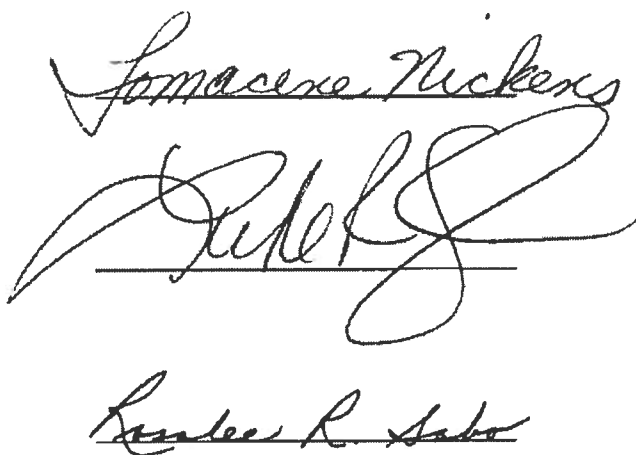 Tomacene Nickens
R.
Rosalee R. Sabo